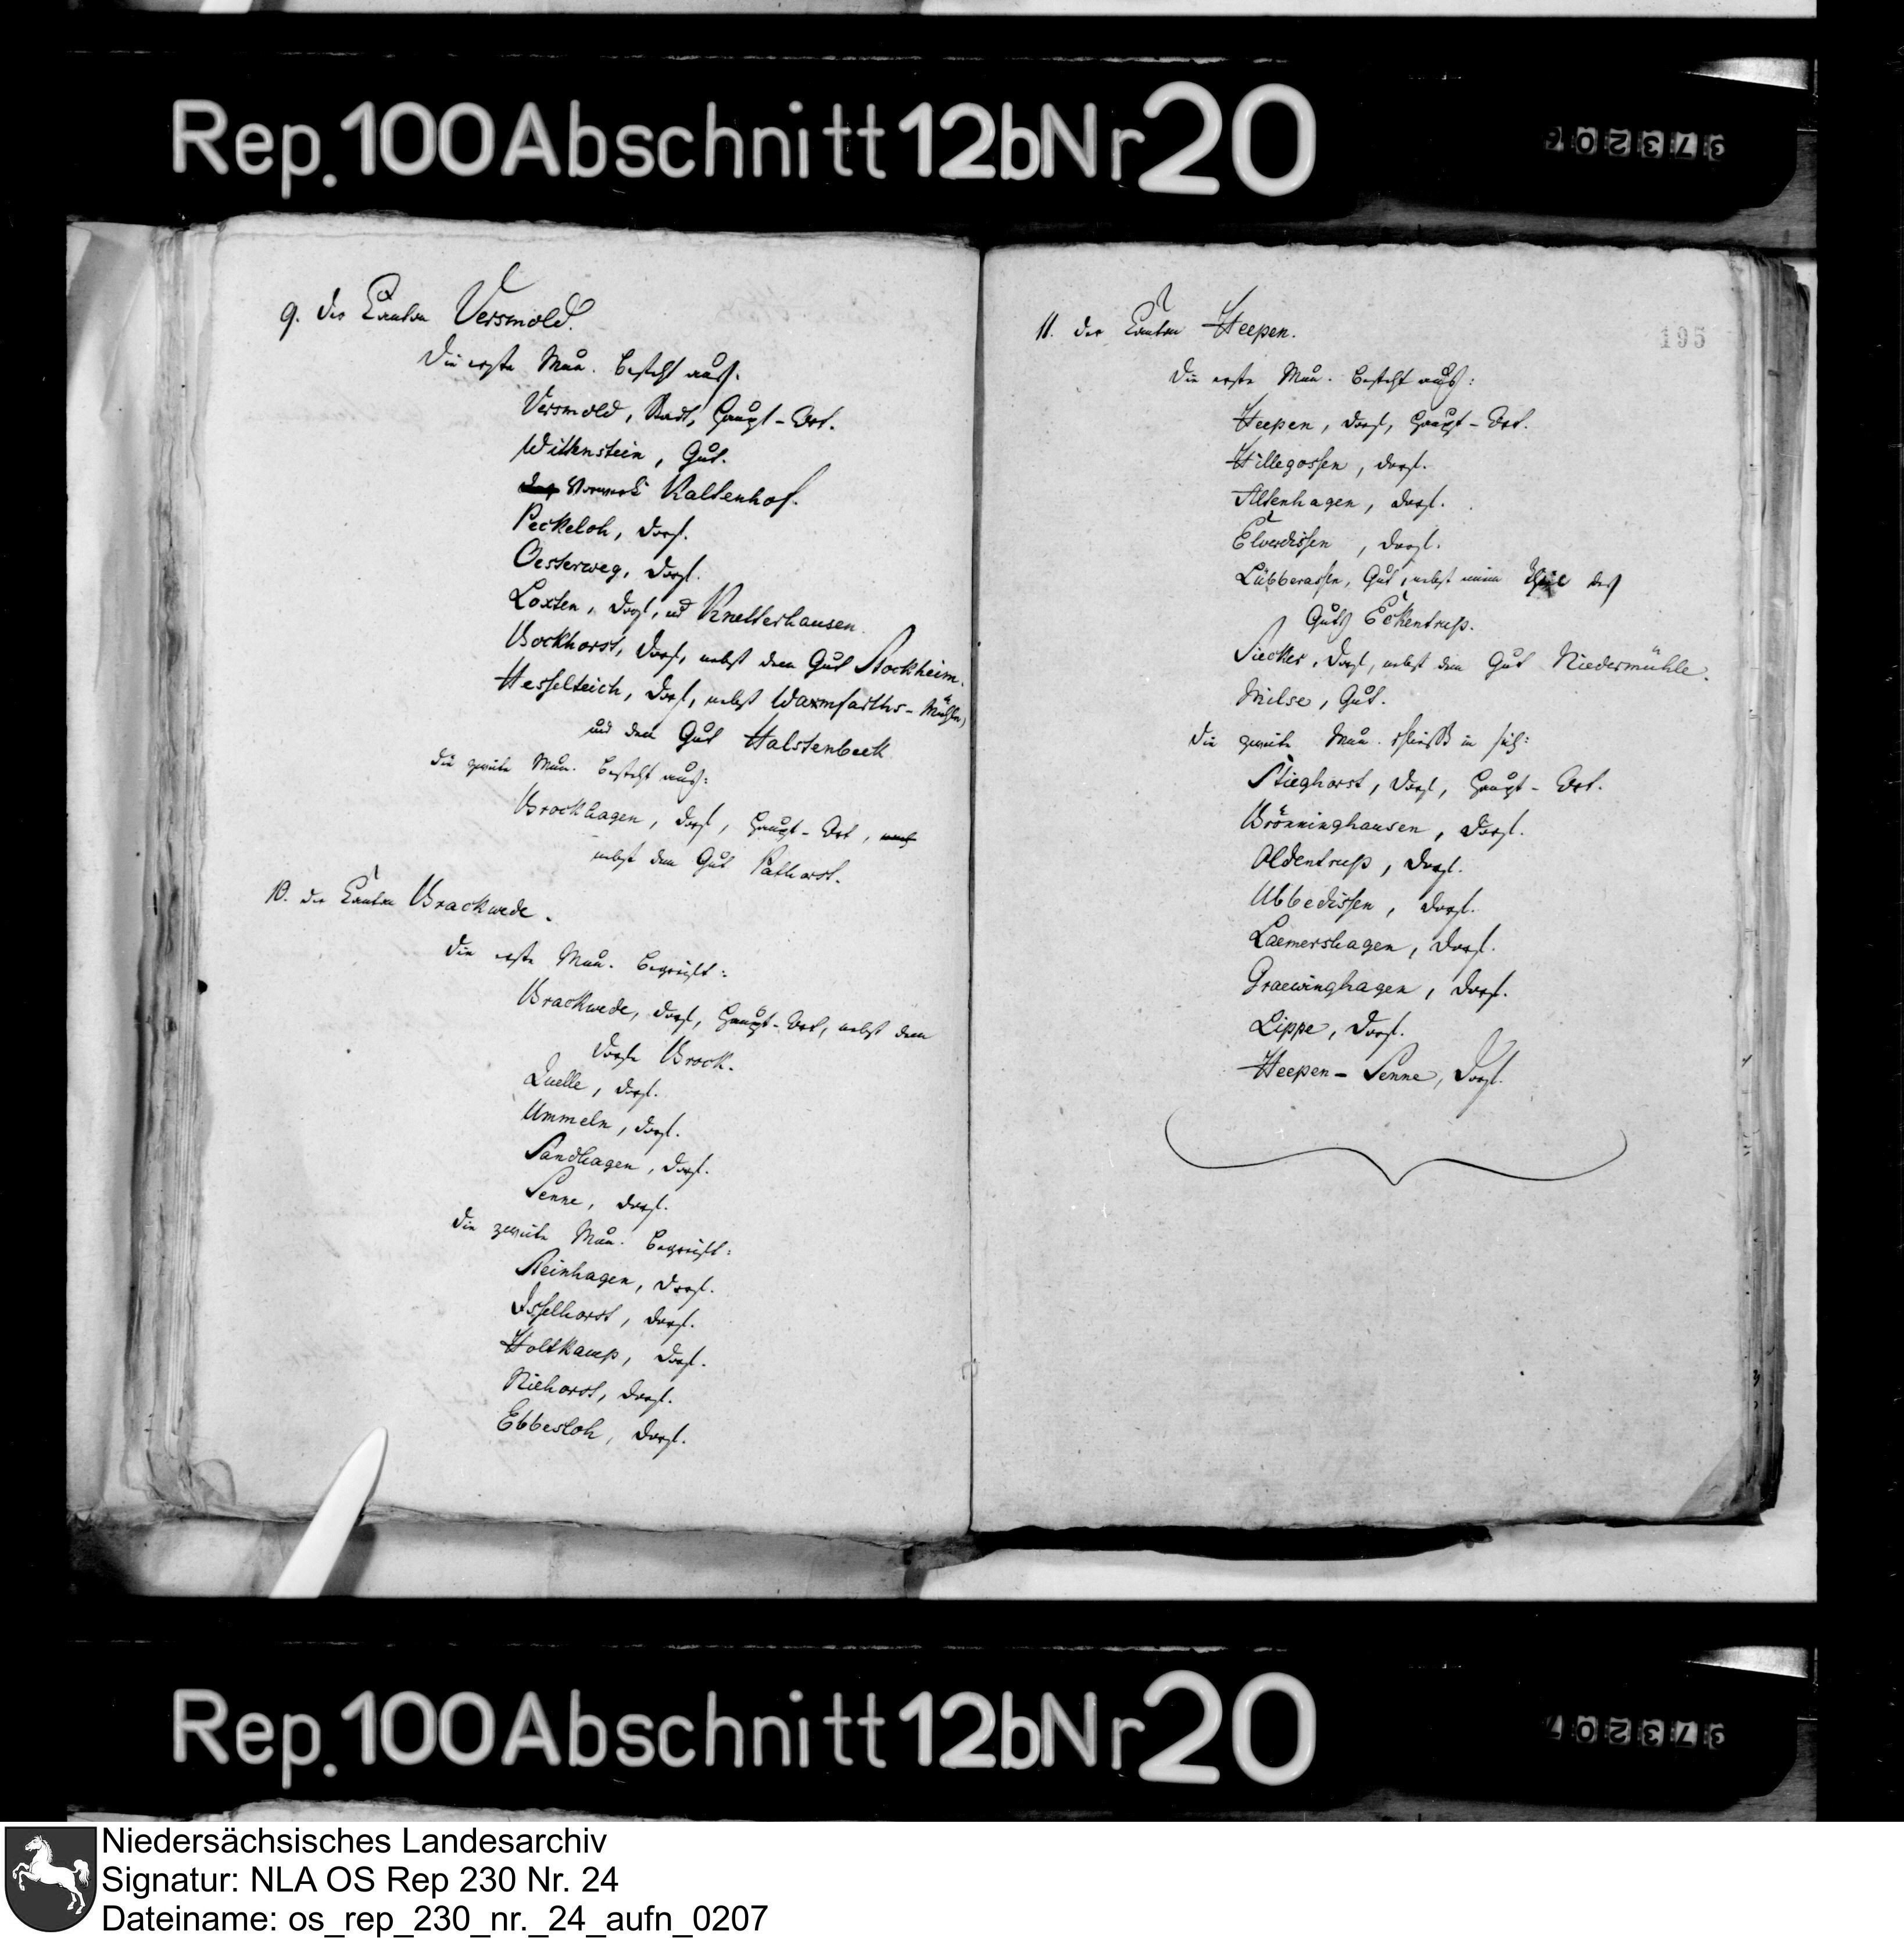 Rep. 100 Abschnitt 12b Nr 20
9. der Canton Versmold.
Die erste Mun. besteht aus:
Versmold, Stadt, Haupt-Ort.
Wittenstein, Gut.
Vorwerk Kaltenhof.
Peckeloh, Dorf.
Oesterweg, Dorf.
Loxten, Dorf, und Knetterhausen.
Bockhorst, Dorf, nebst dem Gut Stockheim.
Hesselteich, Dorf, nebst Warmfarths-Mühle,
und dem Gut Halstenbeck
die zweite Mun. besteht aus:
Brockhagen, Dorf, Haupt-Ort,
nebst dem Gut Pathorst.
10. der Canton Brackwede.
Die erste Mun. begreift:
Brackwede, Dorf, Haupt-Ort, nebst dem
Dorfe Brock.
Quelle, Dorf.
Ummeln, Dorf.
Sandhagen, Dorf.
Senne, Dorf.
Die zweite Mun. begreift:
Steinhagen, Dorf.
Isselhorst, Dorf.
Holtkamp, Dorf.
Niehorst, Dorf.
Ebbesloh, Dorf.
195
11. der Canton Heepen.
Die erste Mun. besteht aus:
Heepen, Dorf, Haupt-Ort.
Hillegossen, Dorf.
Altenhagen, Dorf.
Elverdissen, Dorf.
Lübberassen, Gut, nebst einem Theil des
Guts Eckentrup.
Siecker, Dorf, nebst dem Gut Niedermühle.
Milse, Gut.
Die zweite Mun. schließt in sich:
Stieghorst, Dorf, Haupt-Ort.
Brönninghausen, Dorf.
Oldentrup, Dorf.
Ubbedissen, Dorf.
Laemershagen, Dorf.
Graewinghagen, Dorf.
Lippe, Dorf.
Heepen-Senne, Dorf.
Rep. 100 Abschnitt 12b Nr 20
Niedersächsisches Landesarchiv
Signatur: NLA OS Rep 230 Nr. 24
Dateiname: os_rep_230_nr._24_aufn_0207